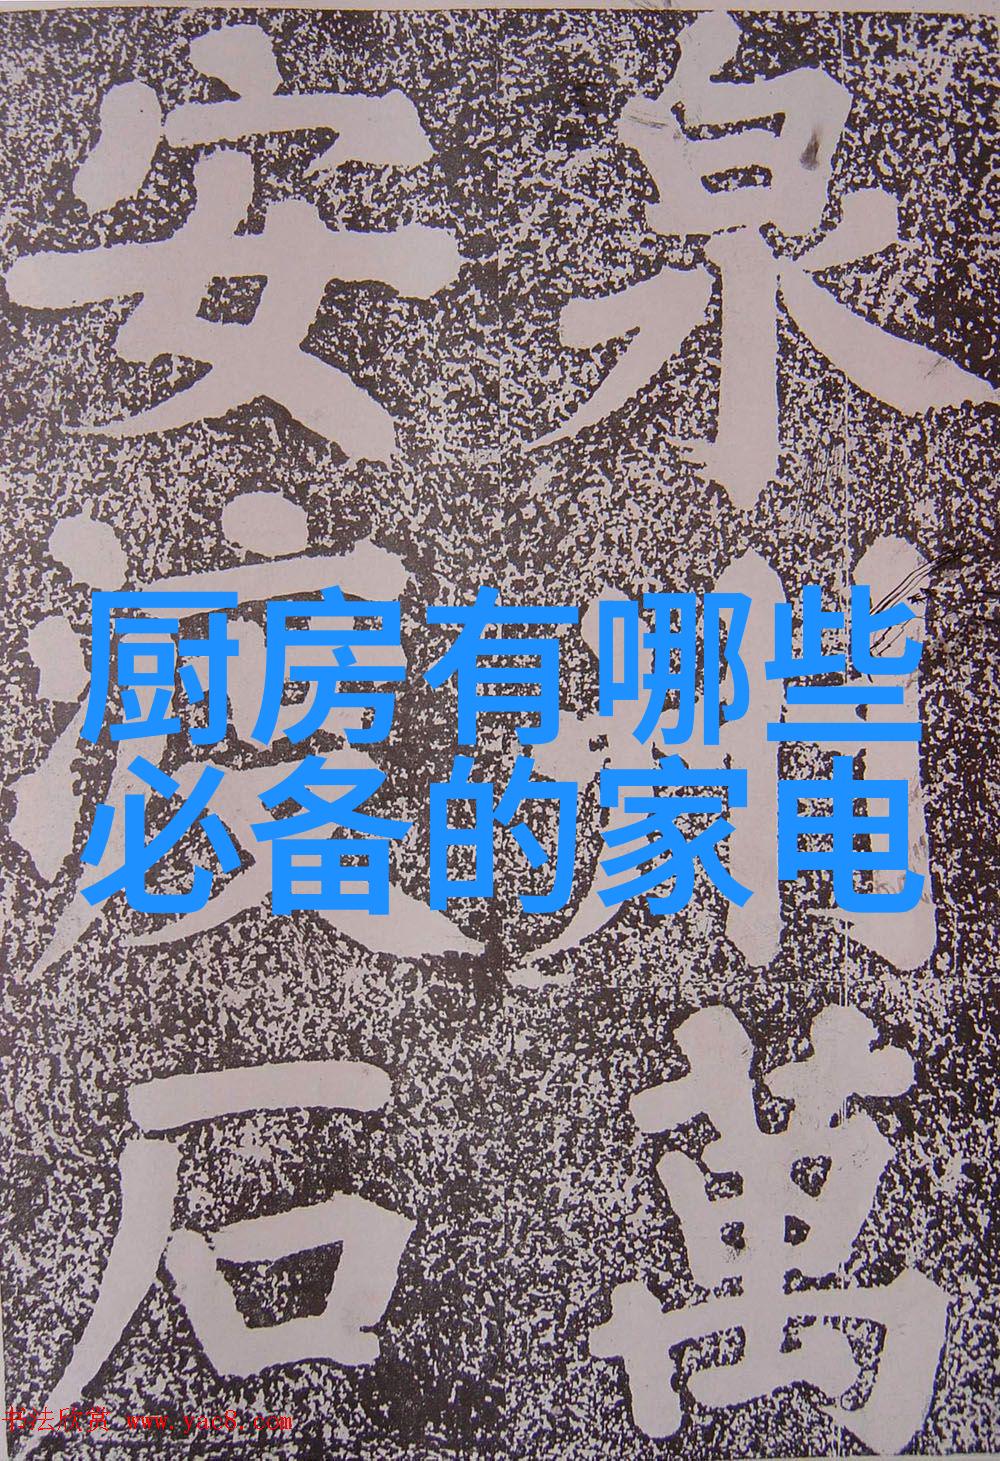 泉州萬
安渡石
厨房有哪些
必备的家电
书法欣赏 www.yac8.com